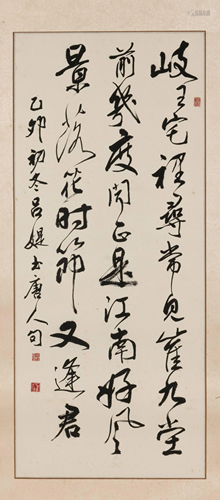 岐王宅裡尋常見崔九堂
前幾度聞正是江南好風
景落花時節又逢君
乙卯初冬呂媞書唐人句